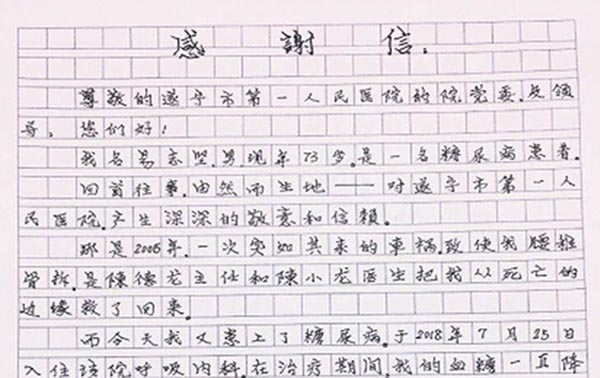 感謝信.
尊敬的遂宁市第一人民医院的院党委.及領
导,您们好!
我名易志坚.男.现年73岁.是一名糖尿病患者.
回首往事.由然而生地——对遂宁市第一人
民医院.产生深深的敬意和信賴.
那是2005年.一次突如其来的車祸.致使我腰椎
骨折.是陳德龙主任和陳小龙医生把我从死亡的
边缘救了回来.
而今天我又患上了糖尿病.于2018年7月25日
入住该院呼吸内科.在治疗期间,我的血糖一直降